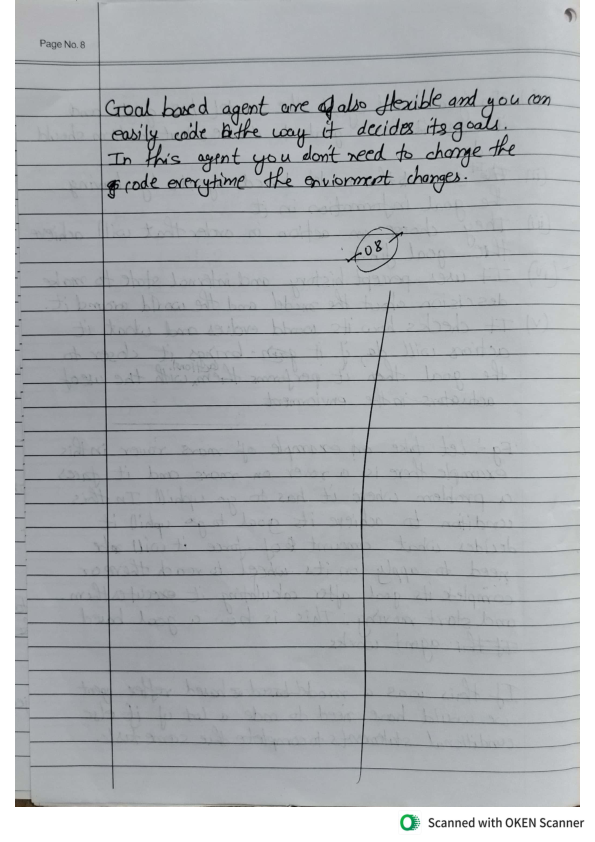 Page No. 8
Goal based agent are also flexible and you can
easily code the way it decides its goals.
In this agent you don't need to change the
code everytime the enviorment changes.
08
Scanned with OKEN Scanner